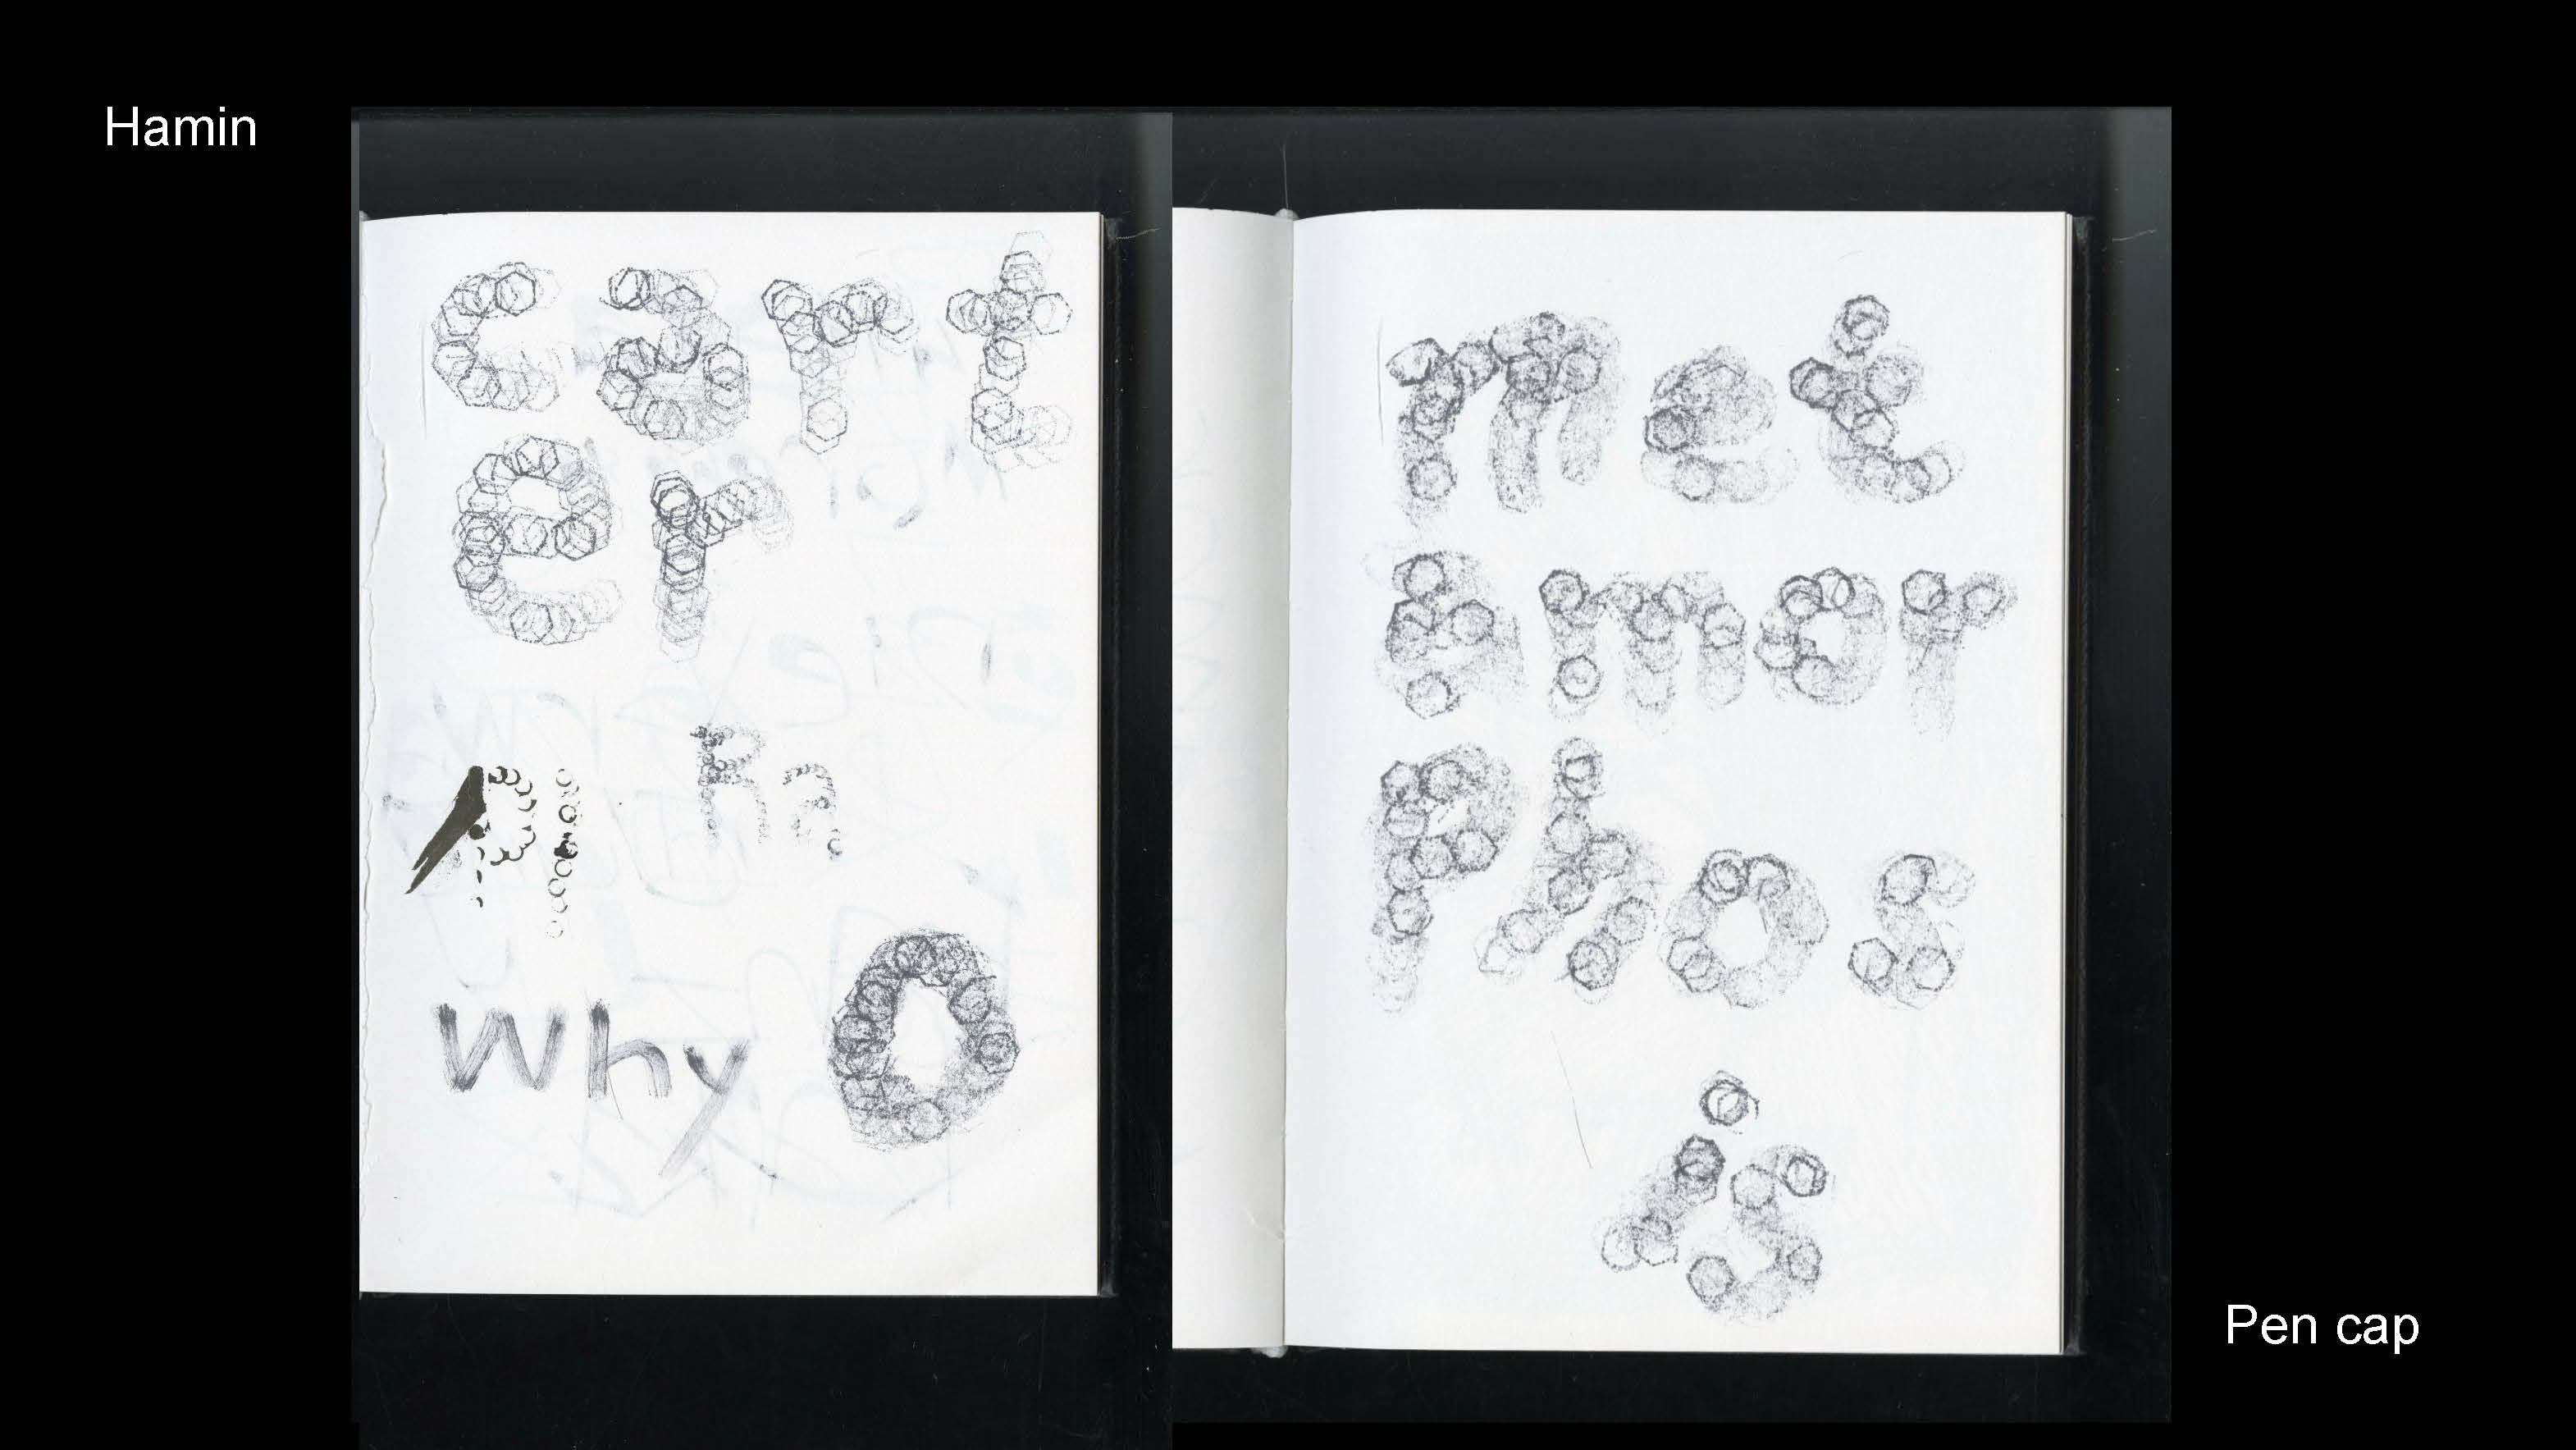 Hamin
cart
er
Ra
why O
met
amor
Phos
is
Pen cap